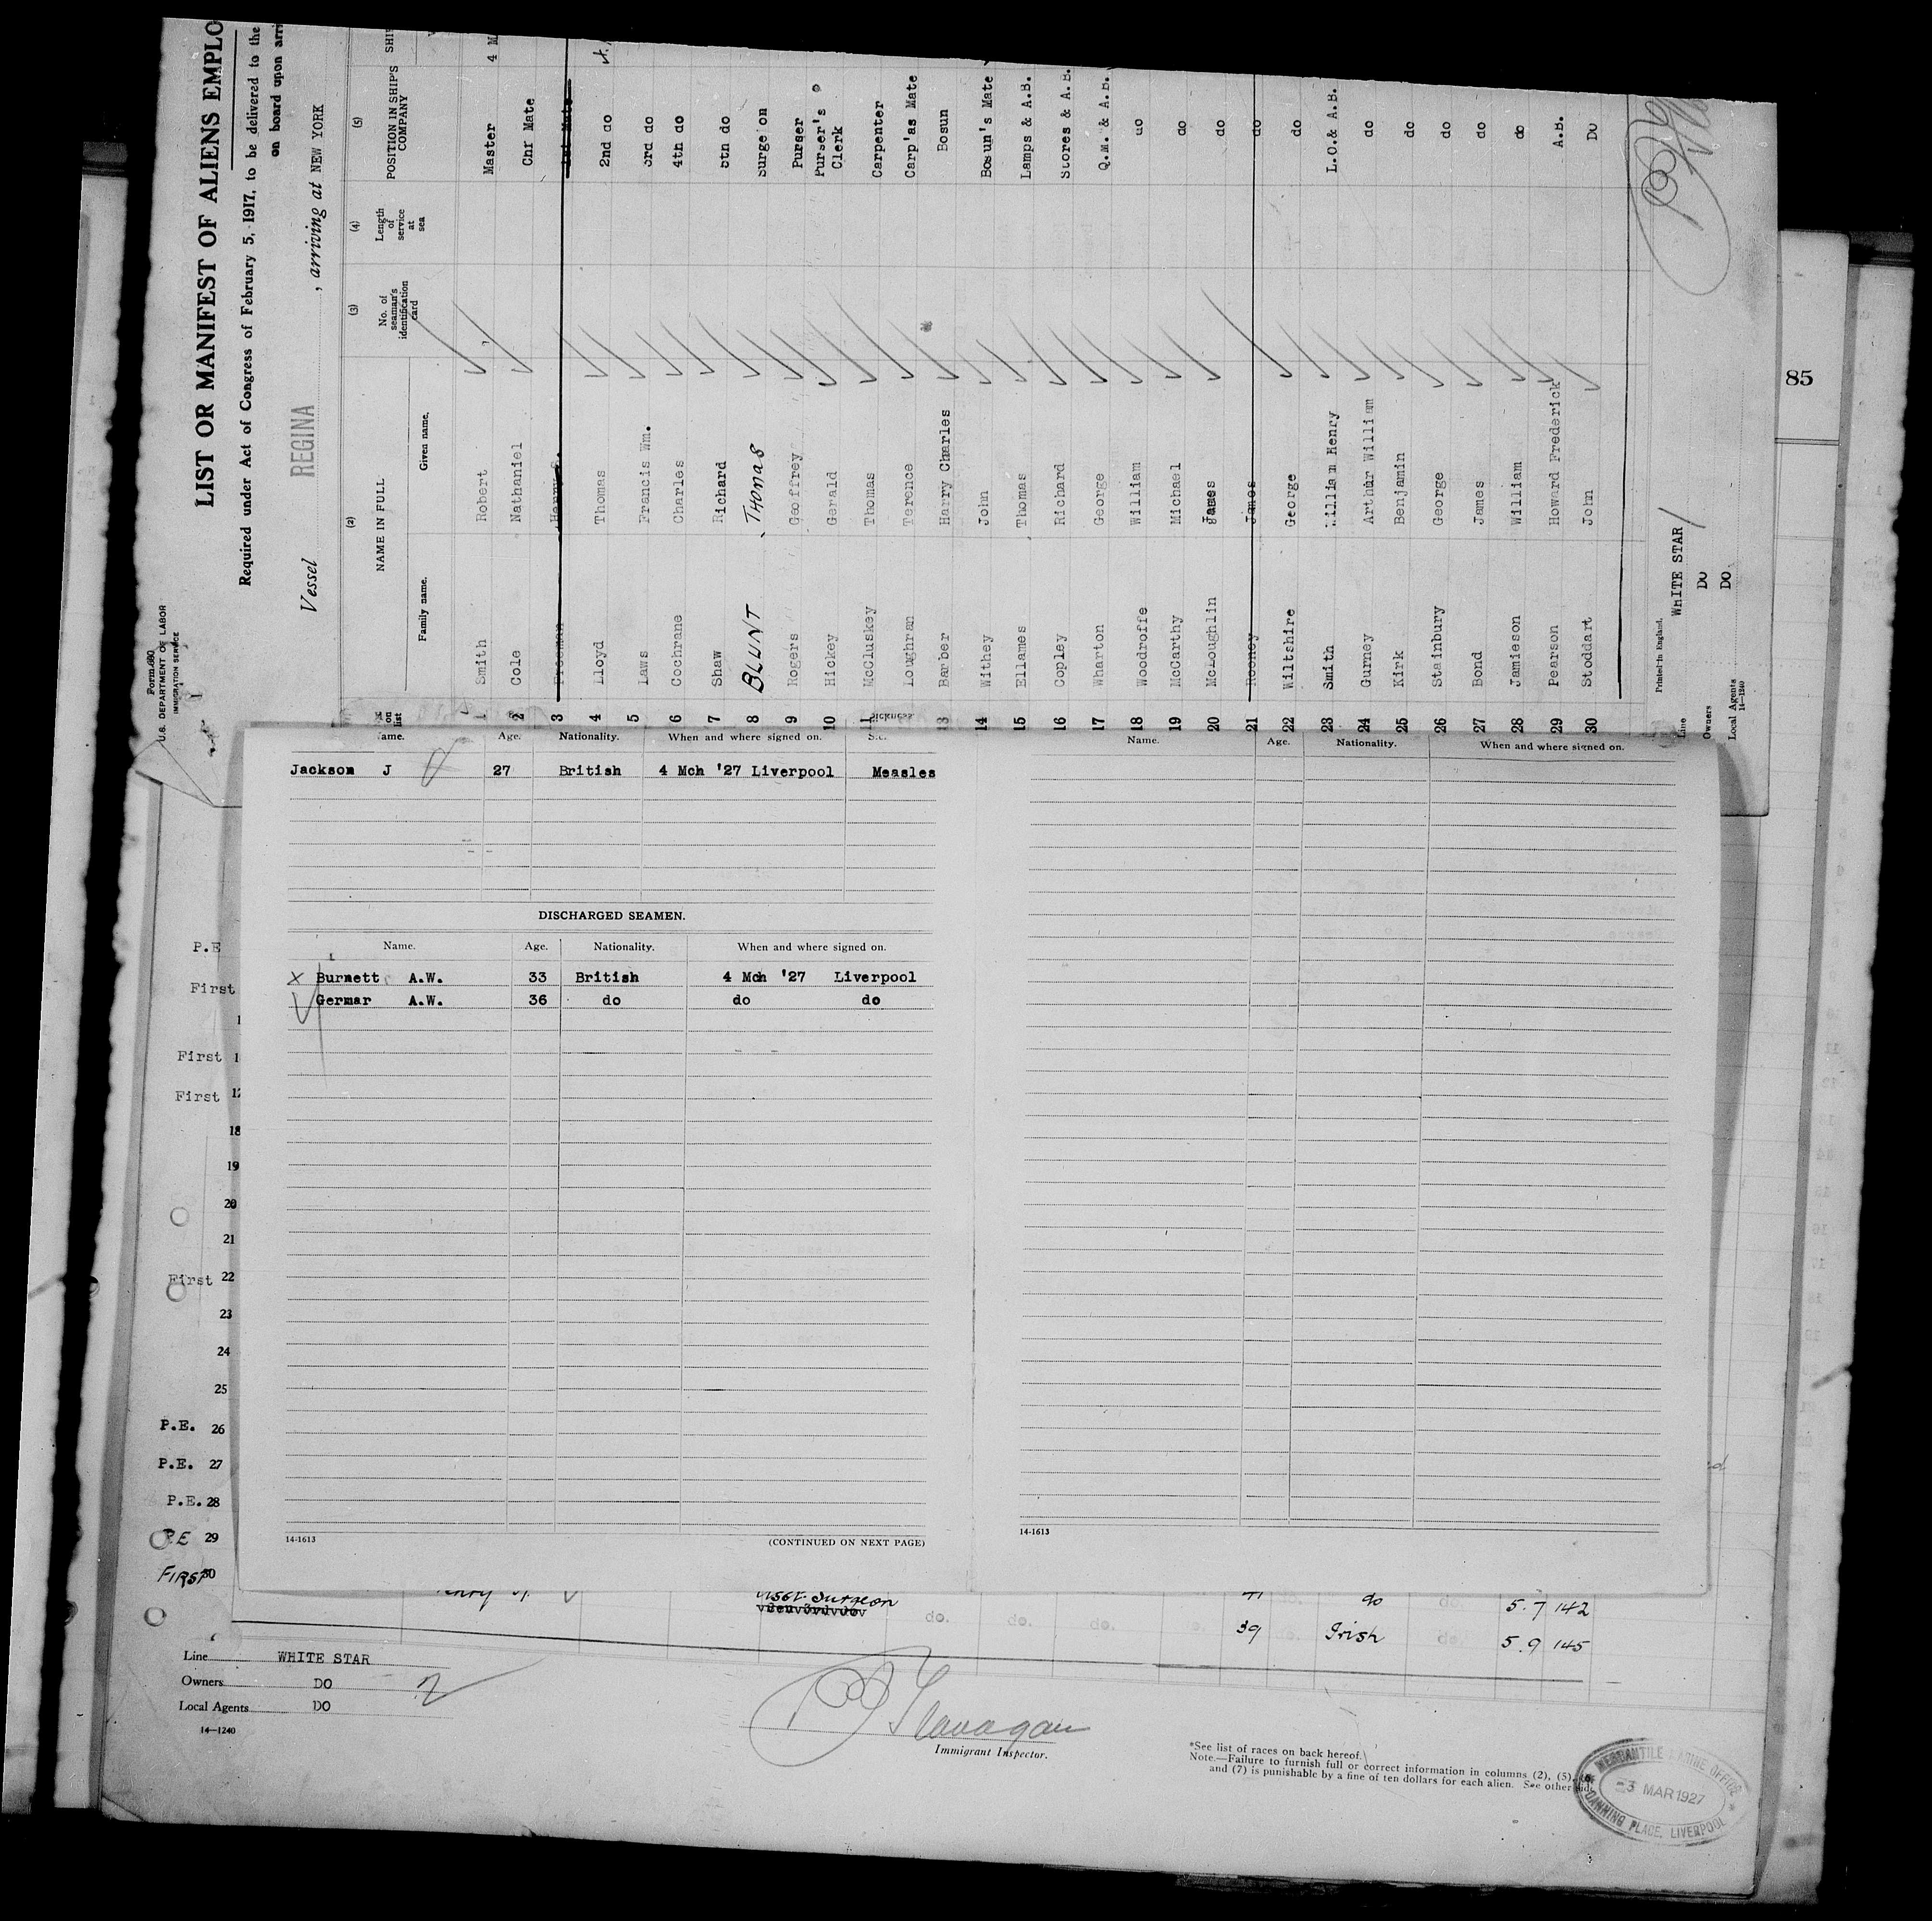 Form 680
U.S. DEPARTMENT OF LABOR
IMMIGRATION SERVICE
LIST OR MANIFEST OF ALIENS EMPLO
Required under Act of Congress of February 5, 1917, to be delivered to the
on board upon arri
Vessel REGINA , arriving at NEW YORK
on list
(2) NAME IN FULL
Family name. Given name.
(3) No. of seaman's identification card
(4) Length of service at sea
(5) POSITION IN SHIP'S COMPANY
SHI
1 Smith Robert Master 4 M
2 Cole Nathaniel Chf Mate
3 Freeman Henry 1st Mate
4 Lloyd Thomas 2nd do
5 Laws Francis Wm. 3rd do
6 Cochrane Charles 4th do
7 Shaw Richard 5th do
8 BLUNT THOMAS Surgeon
9 Rogers Geoffrey Purser
10 Hickey Gerald Purser's Clerk
11 McCluskey Thomas Carpenter
Loughran Terence Carp'as Mate
13 Barber Harry Charles Bosun
14 Withey John Bosun's Mate
15 Ellames Thomas Lamps & A.B.
16 Copley Richard Stores & A.B.
17 Wharton George Q.M. & A.B.
18 Woodroffe William do
19 McCarthy Michael do
20 McLoughlin James do
21 Rooney James do
22 Wiltshire George do
23 Smith William Henry L.O.& A.B.
24 Gurney Arthur William do
25 Kirk Benjamin do
26 Stainbury George do
27 Bond James do
28 Jamieson William do
29 Pearson Howard Frederick A.B.
30 Stoddart John Do
Printed in England.
Line WHITE STAR
Owners Do
Local Agents DO
14—1240
85
ame. Age. Nationality. When and where signed on. Sickness.
Jackson J 27 British 4 Mch '27 Liverpool Measles
DISCHARGED SEAMEN.
Name. Age. Nationality. When and where signed on.
X Burnett A.W. 33 British 4 Mch '27 Liverpool
Germar A.W. 36 do do do
14-1613 (CONTINUED ON NEXT PAGE)
Name. Age. Nationality. When and where signed on.
14-1613
P.E
First
1
First 1
First 1
18
19
20
21
First 22
23
24
25
P.E. 26
P.E. 27
P.E. 28
P.E 29
FIRST 30
Asst. Surgeon do 5.7 142
do. do. do. 39 Irish do. 5.9 145
Line WHITE STAR
Owners DO
Local Agents DO
14—1240
Flanagan
Immigrant Inspector.
*See list of races on back hereof.
Note.—Failure to furnish full or correct information in columns (2), (5),
and (7) is punishable by a fine of ten dollars for each alien. See other side
MERCANTILE MARINE OFFICE
-3 MAR 1927
CANNING PLACE, LIVERPOOL